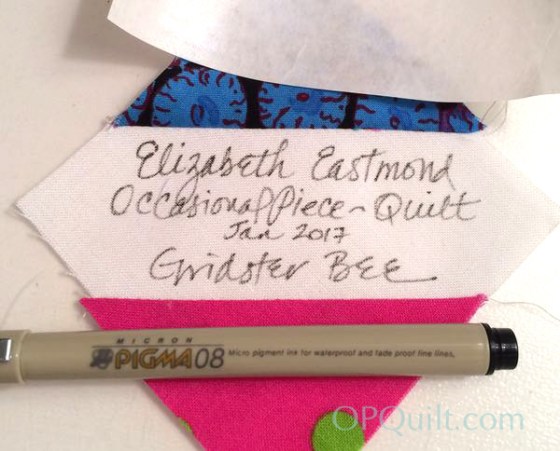 Elizabeth Eastmond
OccasionalPiece~Quilt
Jan 2017
Gridster BEE
MICRON
PIGMA 08 Micro pigment ink for waterproof and fade proof line lines.
OPQuilt.com